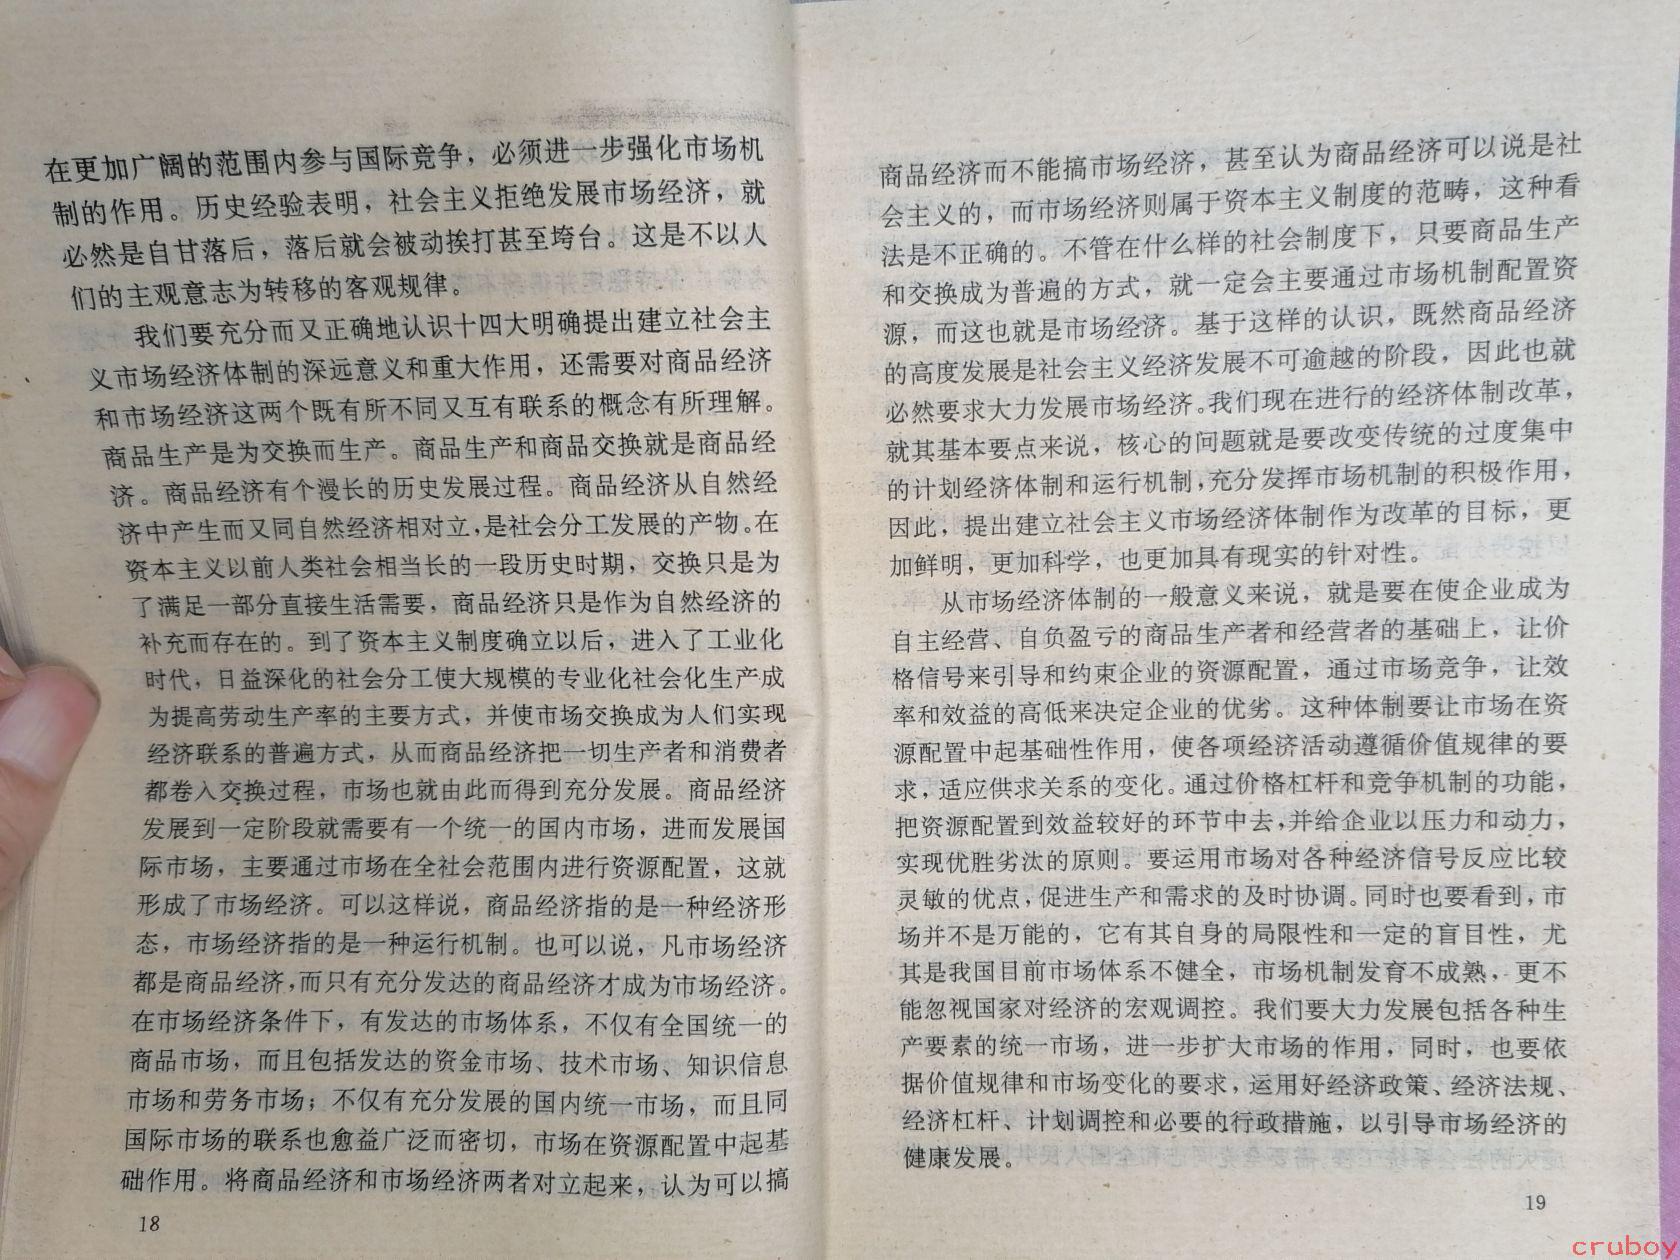 在更加广阔的范围内参与国际竞争，必须进一步强化市场机
制的作用。历史经验表明，社会主义拒绝发展市场经济，就
必然是自甘落后，落后就会被动挨打甚至垮台。这是不以人
们的主观意志为转移的客观规律。
我们要充分而又正确地认识十四大明确提出建立社会主
义市场经济体制的深远意义和重大作用，还需要对商品经济
和市场经济这两个既有所不同又互有联系的概念有所理解。
商品生产是为交换而生产。商品生产和商品交换就是商品经
济。商品经济有个漫长的历史发展过程。商品经济从自然经
济中产生而又同自然经济相对立，是社会分工发展的产物。在
资本主义以前人类社会相当长的一段历史时期，交换只是为
了满足一部分直接生活需要，商品经济只是作为自然经济的
补充而存在的。到了资本主义制度确立以后，进入了工业化
时代，日益深化的社会分工使大规模的专业化社会化生产成
为提高劳动生产率的主要方式，并使市场交换成为人们实现
经济联系的普遍方式，从而商品经济把一切生产者和消费者
都卷入交换过程，市场也就由此而得到充分发展。商品经济
发展到一定阶段就需要有一个统一的国内市场，进而发展国
际市场，主要通过市场在全社会范围内进行资源配置，这就
形成了市场经济。可以这样说，商品经济指的是一种经济形
态，市场经济指的是一种运行机制。也可以说，凡市场经济
都是商品经济，而只有充分发达的商品经济才成为市场经济。
在市场经济条件下，有发达的市场体系，不仅有全国统一的
商品市场，而且包括发达的资金市场、技术市场、知识信息
市场和劳务市场；不仅有充分发展的国内统一市场，而且同
国际市场的联系也愈益广泛而密切，市场在资源配置中起基
础作用。将商品经济和市场经济两者对立起来，认为可以搞
18
商品经济而不能搞市场经济，甚至认为商品经济可以说是社
会主义的，而市场经济则属于资本主义制度的范畴，这种看
法是不正确的。不管在什么样的社会制度下，只要商品生产
和交换成为普遍的方式，就一定会主要通过市场机制配置资
源，而这也就是市场经济。基于这样的认识，既然商品经济
的高度发展是社会主义经济发展不可逾越的阶段，因此也就
必然要求大力发展市场经济。我们现在进行的经济体制改革，
就其基本要点来说，核心的问题就是要改变传统的过度集中
的计划经济体制和运行机制，充分发挥市场机制的积极作用，
因此，提出建立社会主义市场经济体制作为改革的目标，更
加鲜明，更加科学，也更加具有现实的针对性。
从市场经济体制的一般意义来说，就是要在使企业成为
自主经营、自负盈亏的商品生产者和经营者的基础上，让价
格信号来引导和约束企业的资源配置，通过市场竞争，让效
率和效益的高低来决定企业的优劣。这种体制要让市场在资
源配置中起基础性作用，使各项经济活动遵循价值规律的要
求，适应供求关系的变化。通过价格杠杆和竞争机制的功能，
把资源配置到效益较好的环节中去，并给企业以压力和动力，
实现优胜劣汰的原则。要运用市场对各种经济信号反应比较
灵敏的优点，促进生产和需求的及时协调。同时也要看到，市
场并不是万能的，它有其自身的局限性和一定的盲目性，尤
其是我国目前市场体系不健全，市场机制发育不成熟，更不
能忽视国家对经济的宏观调控。我们要大力发展包括各种生
产要素的统一市场，进一步扩大市场的作用，同时，也要依
据价值规律和市场变化的要求，运用好经济政策、经济法规、
经济杠杆、计划调控和必要的行政措施，以引导市场经济的
健康发展。
19
cruboy